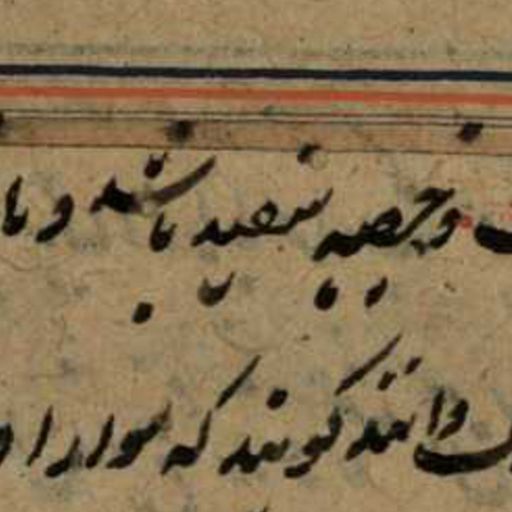 وخصیه سفید باشد و با
دانند کویند که سوار را